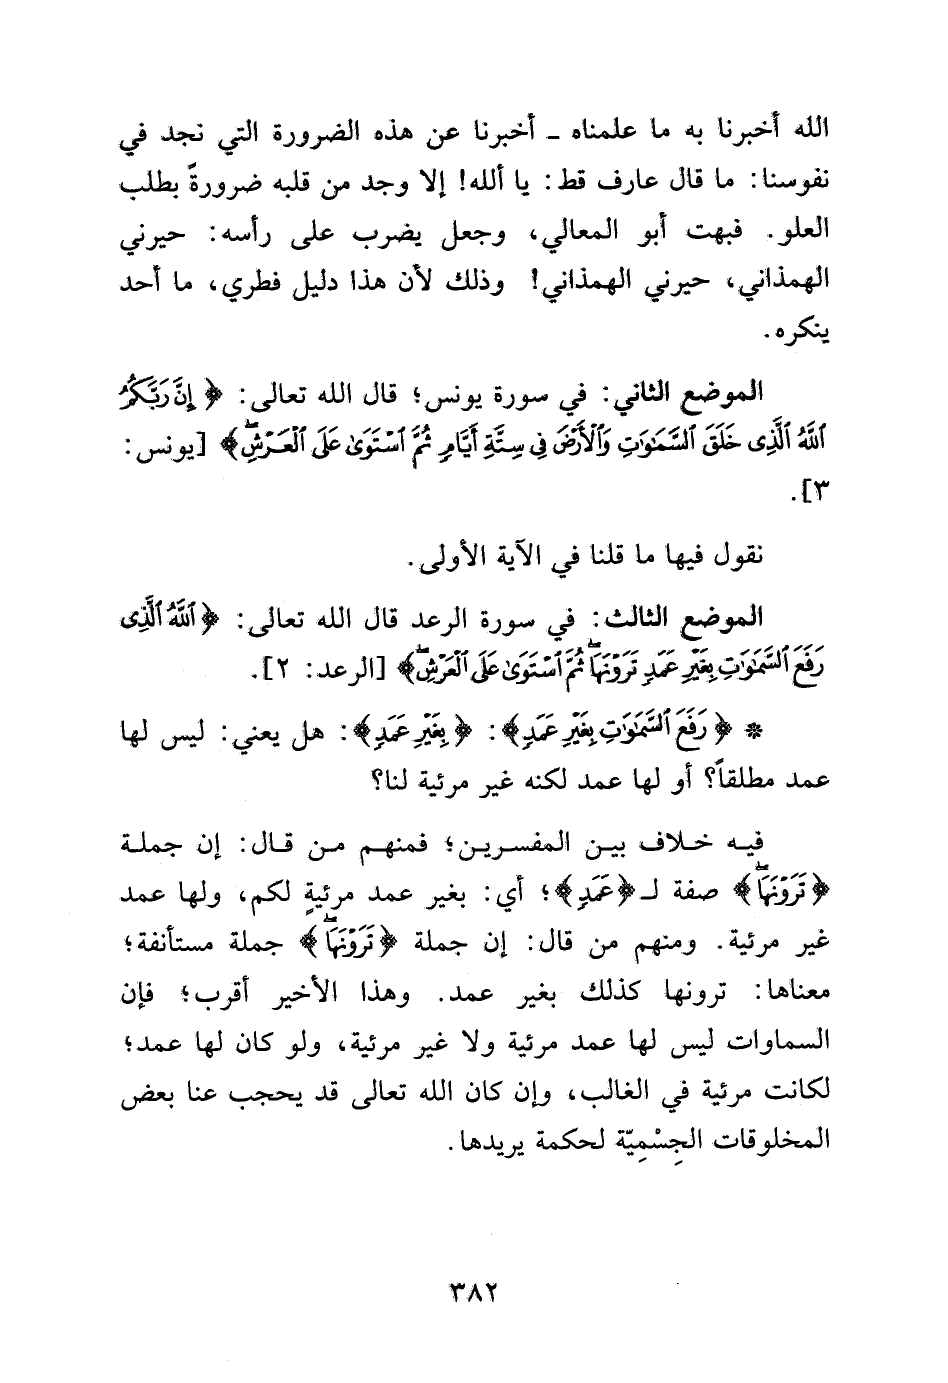 الله أخبرنا به ما علمناه ـ أخبرنا عن هذه الضرورة التي نجد في
نفوسنا: ما قال عارف قط: يا ألله! إلا وجد من قلبه ضرورةً بطلب
العلو. فبهت أبو المعالي، وجعل يضرب على رأسه: حيرني
الهمذاني، حيرني الهمذاني! وذلك لأن هذا دليل فطري، ما أحد
ينكره.
الموضع الثاني: في سورة يونس؛ قال الله تعالى: ﴿إِنَّ رَبَّكُمُ
ٱللَّهُ ٱلَّذِى خَلَقَ ٱلسَّمَٰوَٰتِ وَٱلْأَرْضَ فِى سِتَّةِ أَيَّامٍ ثُمَّ ٱسْتَوَىٰ عَلَى ٱلْعَرْشِۖ﴾ [يونس:
٣].
نقول فيها ما قلنا في الآية الأولى.
الموضع الثالث: في سورة الرعد قال الله تعالى: ﴿ٱللَّهُ ٱلَّذِى
رَفَعَ ٱلسَّمَٰوَٰتِ بِغَيْرِ عَمَدٍ تَرَوْنَهَاۖ ثُمَّ ٱسْتَوَىٰ عَلَى ٱلْعَرْشِۖ﴾ [الرعد: ٢].
* ﴿رَفَعَ ٱلسَّمَٰوَٰتِ بِغَيْرِ عَمَدٍ﴾: ﴿بِغَيْرِ عَمَدٍ﴾: هل يعني: ليس لها
عمد مطلقاً؟ أو لها عمد لكنه غير مرئية لنا؟
فيه خلاف بين المفسرين؛ فمنهم من قال: إن جملة
﴿تَرَوْنَهَاۖ﴾ صفة لـ ﴿عَمَدٍ﴾؛ أي: بغير عمد مرئيةٍ لكم، ولها عمد
غير مرئية. ومنهم من قال: إن جملة ﴿تَرَوْنَهَاۖ﴾ جملة مستأنفة؛
معناها: ترونها كذلك بغير عمد. وهذا الأخير أقرب؛ فإن
السماوات ليس لها عمد مرئية ولا غير مرئية، ولو كان لها عمد؛
لكانت مرئية في الغالب، وإن كان الله تعالى قد يحجب عنا بعض
المخلوقات الجِسْمِيّة لحكمة يريدها.
٣٨٢